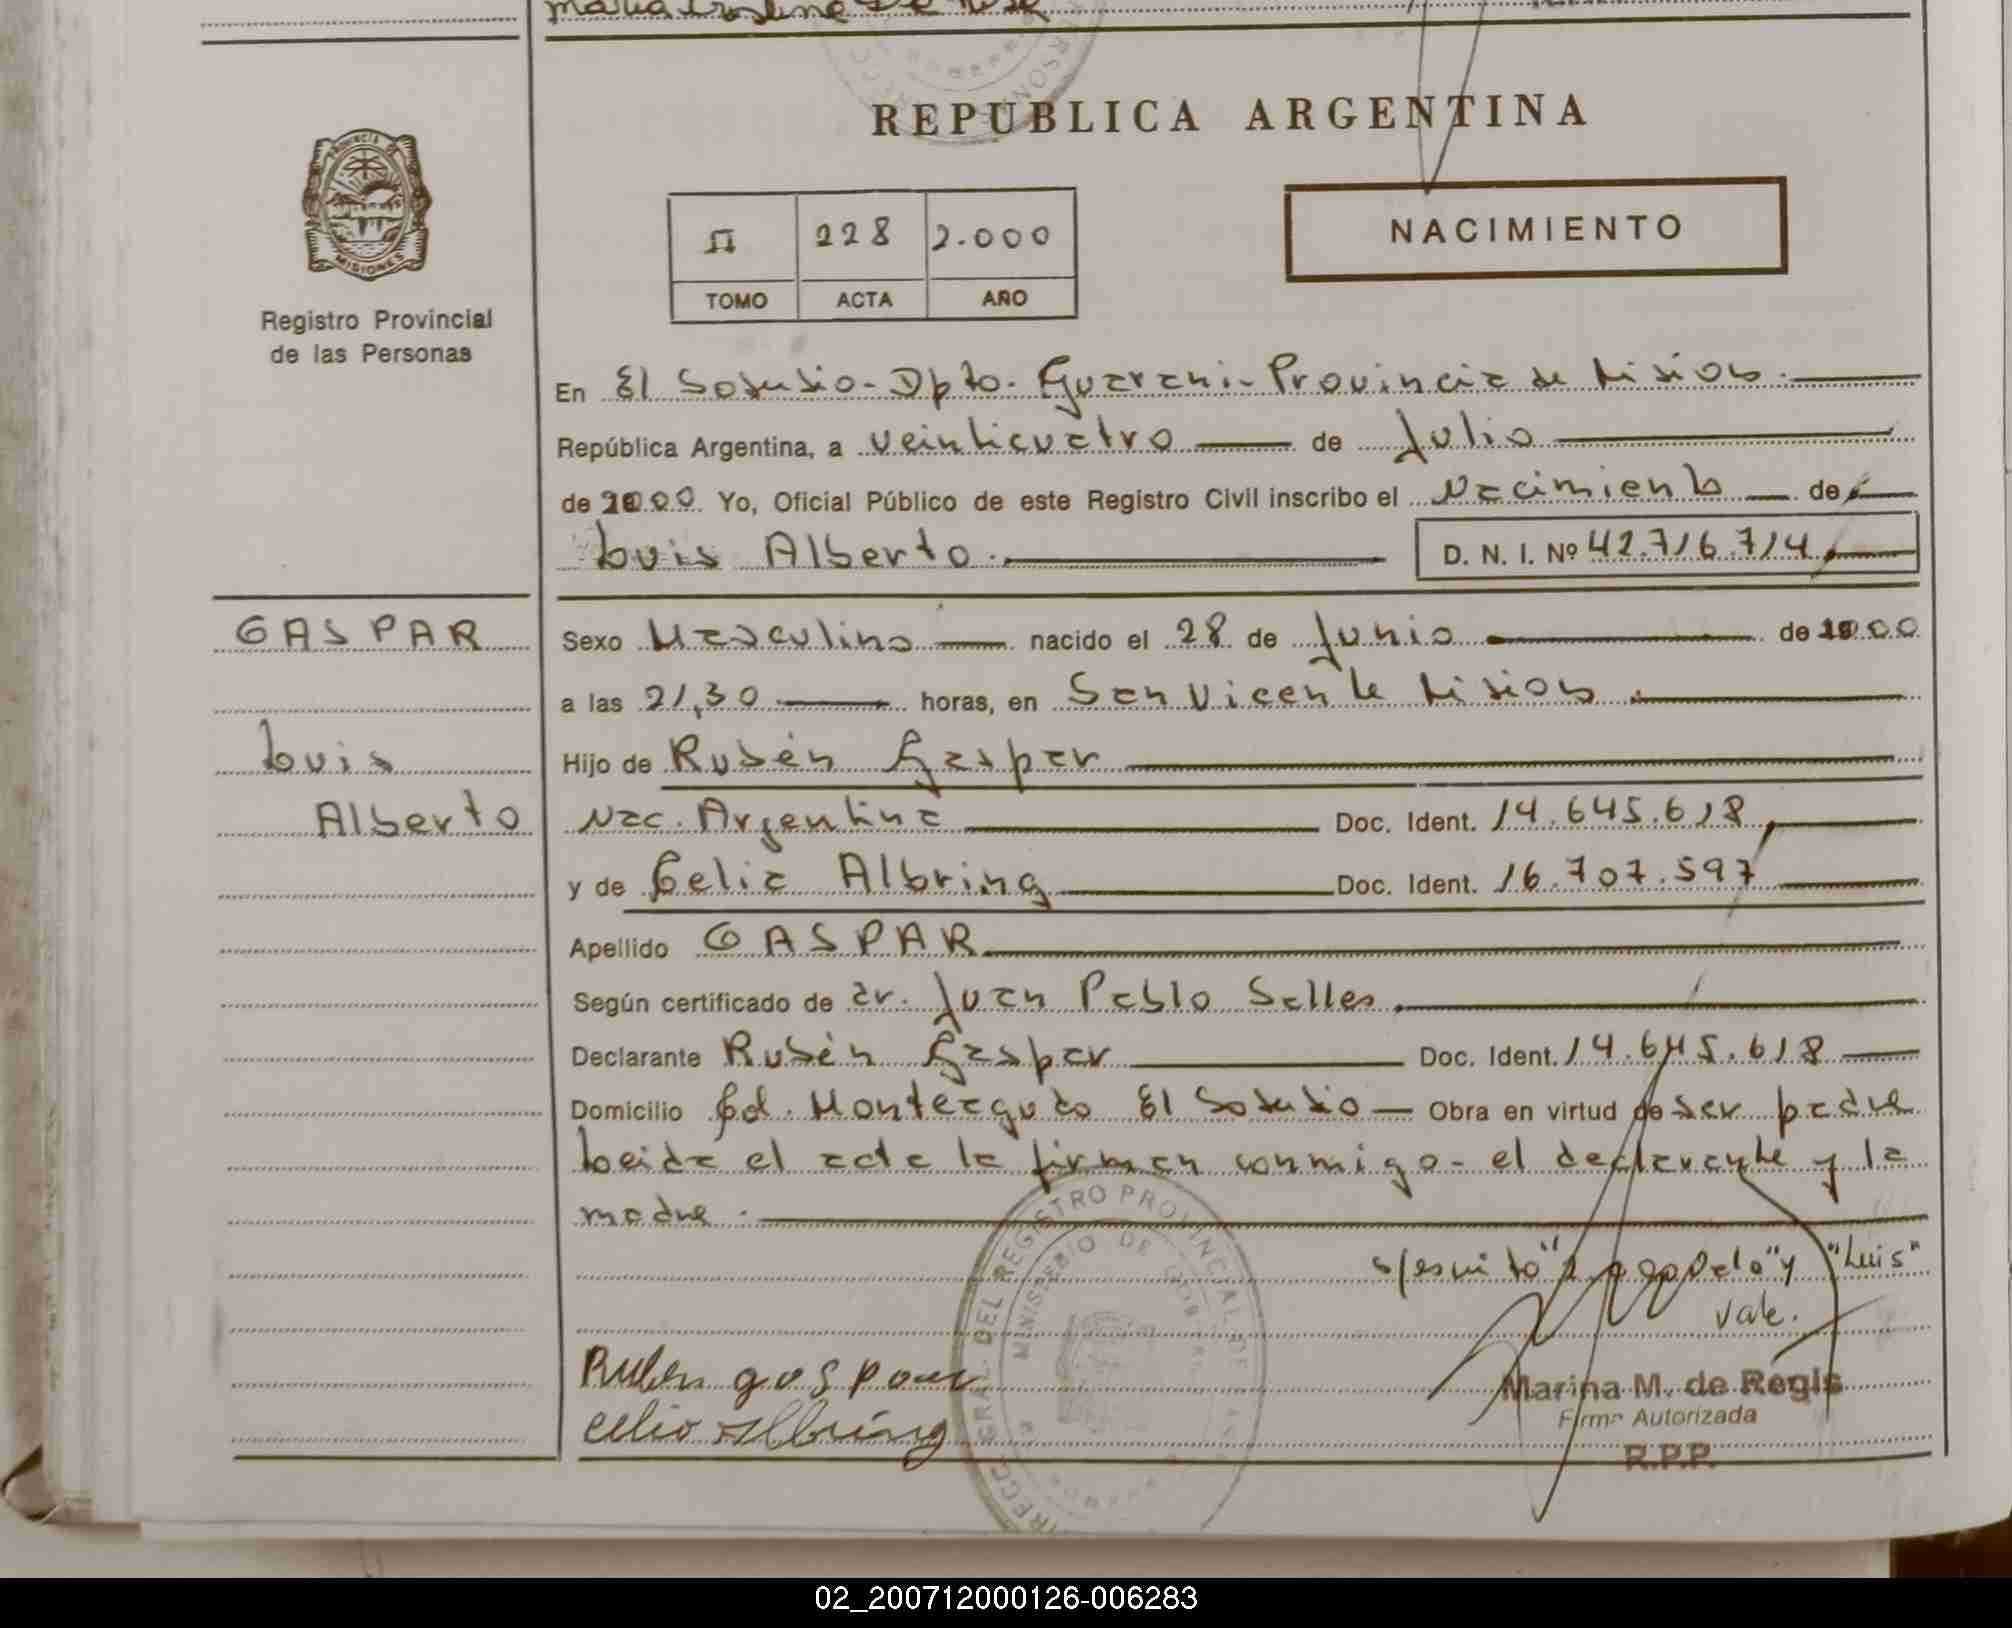 REPUBLICA ARGENTINA
PROVINCIA DE
MISIONES
Registro Provincial
de las Personas
II 228 2.000
TOMO ACTA AÑO
NACIMIENTO
En El Soberbio - Dpto. Guarani - Provincia de Misiones.
República Argentina, a veinticuatro de Julio
de 2000 Yo, Oficial Público de este Registro Civil inscribo el Nacimiento de
Luis Alberto. D. N. I. Nº 42.716.714
GASPAR
Luis
Alberto
Sexo Masculino nacido el 28 de Junio de 2000
a las 21,30 horas, en San Vicente Misiones.
Hijo de Rubén Gaspar
Nac. Argentina Doc. Ident. 14.645.618
y de Celia Albring Doc. Ident. 16.707.597
Apellido GASPAR
Según certificado de dr. Juan Pablo Salles.
Declarante Rubén Gaspar Doc. Ident. 14.645.618
Domicilio Col. Monteagudo El Soberbio Obra en virtud de ser padre
Leida el acta la firman conmigo - el declarante y la
madre.
"Luis"
vale.
Ruben gaspar
celia albring
REGISTRO PROVINCIAL DE
MINISTERIO DE
Marina M. de Regis
Firma Autorizada
R.P.P.
02_200712000126-006283